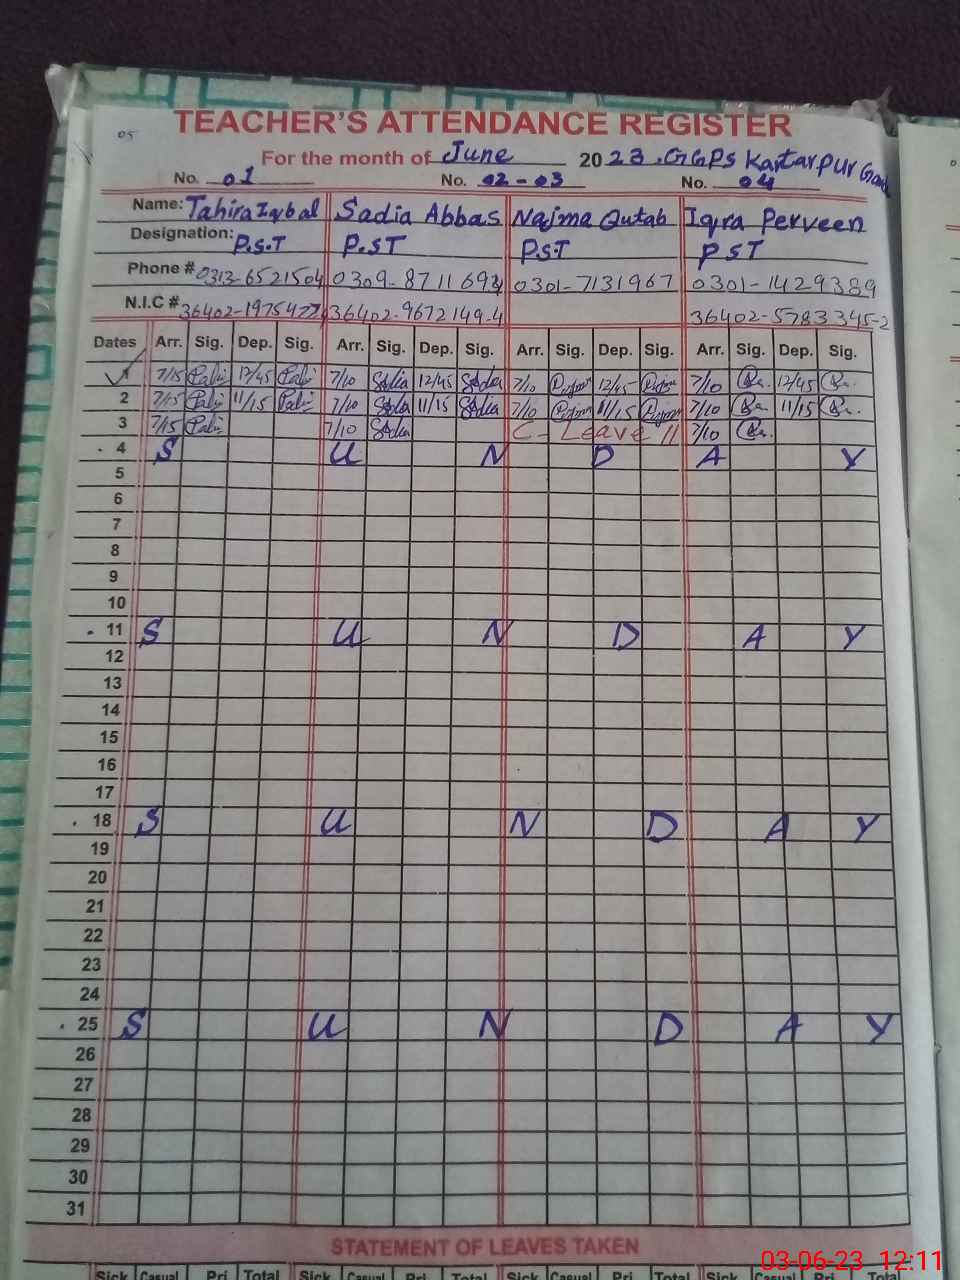 05
TEACHER'S ATTENDANCE REGISTER
For the month of June 2023. GGPS Kartarpur
No. 01 No. 02-03 No. 04
Name: Tahira Iqbal Sadia Abbas Najma Qutab Iqra Perveen
Designation: P.S.T P.ST P.S.T P ST
Phone # 0313-6521504 0309-8711694 0301-7131967 0301-1429389
N.I.C # 36402-9672149-4 36402-5783345-2
Dates Arr. Sig. Dep. Sig. Arr. Sig. Dep. Sig. Arr. Sig. Dep. Sig. Arr. Sig. Dep. Sig.
1 7/15 12/45 7/10 Sadia 12/45 Sadia 7/10 12/45 7/10 12/45
2 7/15 11/15 7/10 Sadia 11/15 Sadia 7/10 11/15 7/10 11/15
3 7/15 7/10 Sadia C- Leave 11 7/10
4 S U N D A Y
5
6
7
8
9
10
11 S U N D A Y
12
13
14
15
16
17
18 S U N D A Y
19
20
21
22
23
24
25 S U N D A Y
26
27
28
29
30
31
STATEMENT OF LEAVES TAKEN
Sick Casual Pri Total Sick Casual Pri Total Sick Casual Pri Total Sick Casual Pri Total
03-06-23 12:11